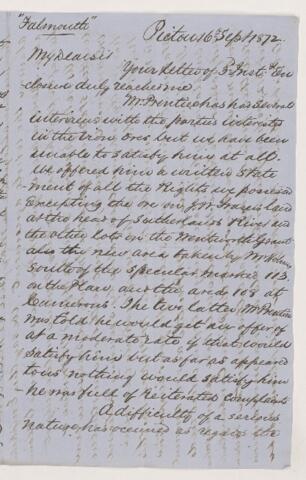 "Falmouth"
Pictou 16 Sept 1872
My Dear Sir
Your letter of 3 Inst & En
closures duly reached me
Mr Prentice has had several
interviews with the parties interested
in the Iron Ores but we have been
unable to satisfy him at all
we offered him a written State
ment of all the Rights we possessed
excepting the one on Jn Frasers land
at the head of Sutherlands River and
the other lots in the Wentworth Grant
also the new area taken by Mr
South of the Specular marked 113
on the Plan, and the area 108 at
The two latter Mr Prentice
was told he would get an offer of
at a moderate rate if that would
satisfy him but as far as appeared
to us nothing would satisfy him
he was full of reiterated complaints
A difficulty of a serious
nature has occurred as regards the